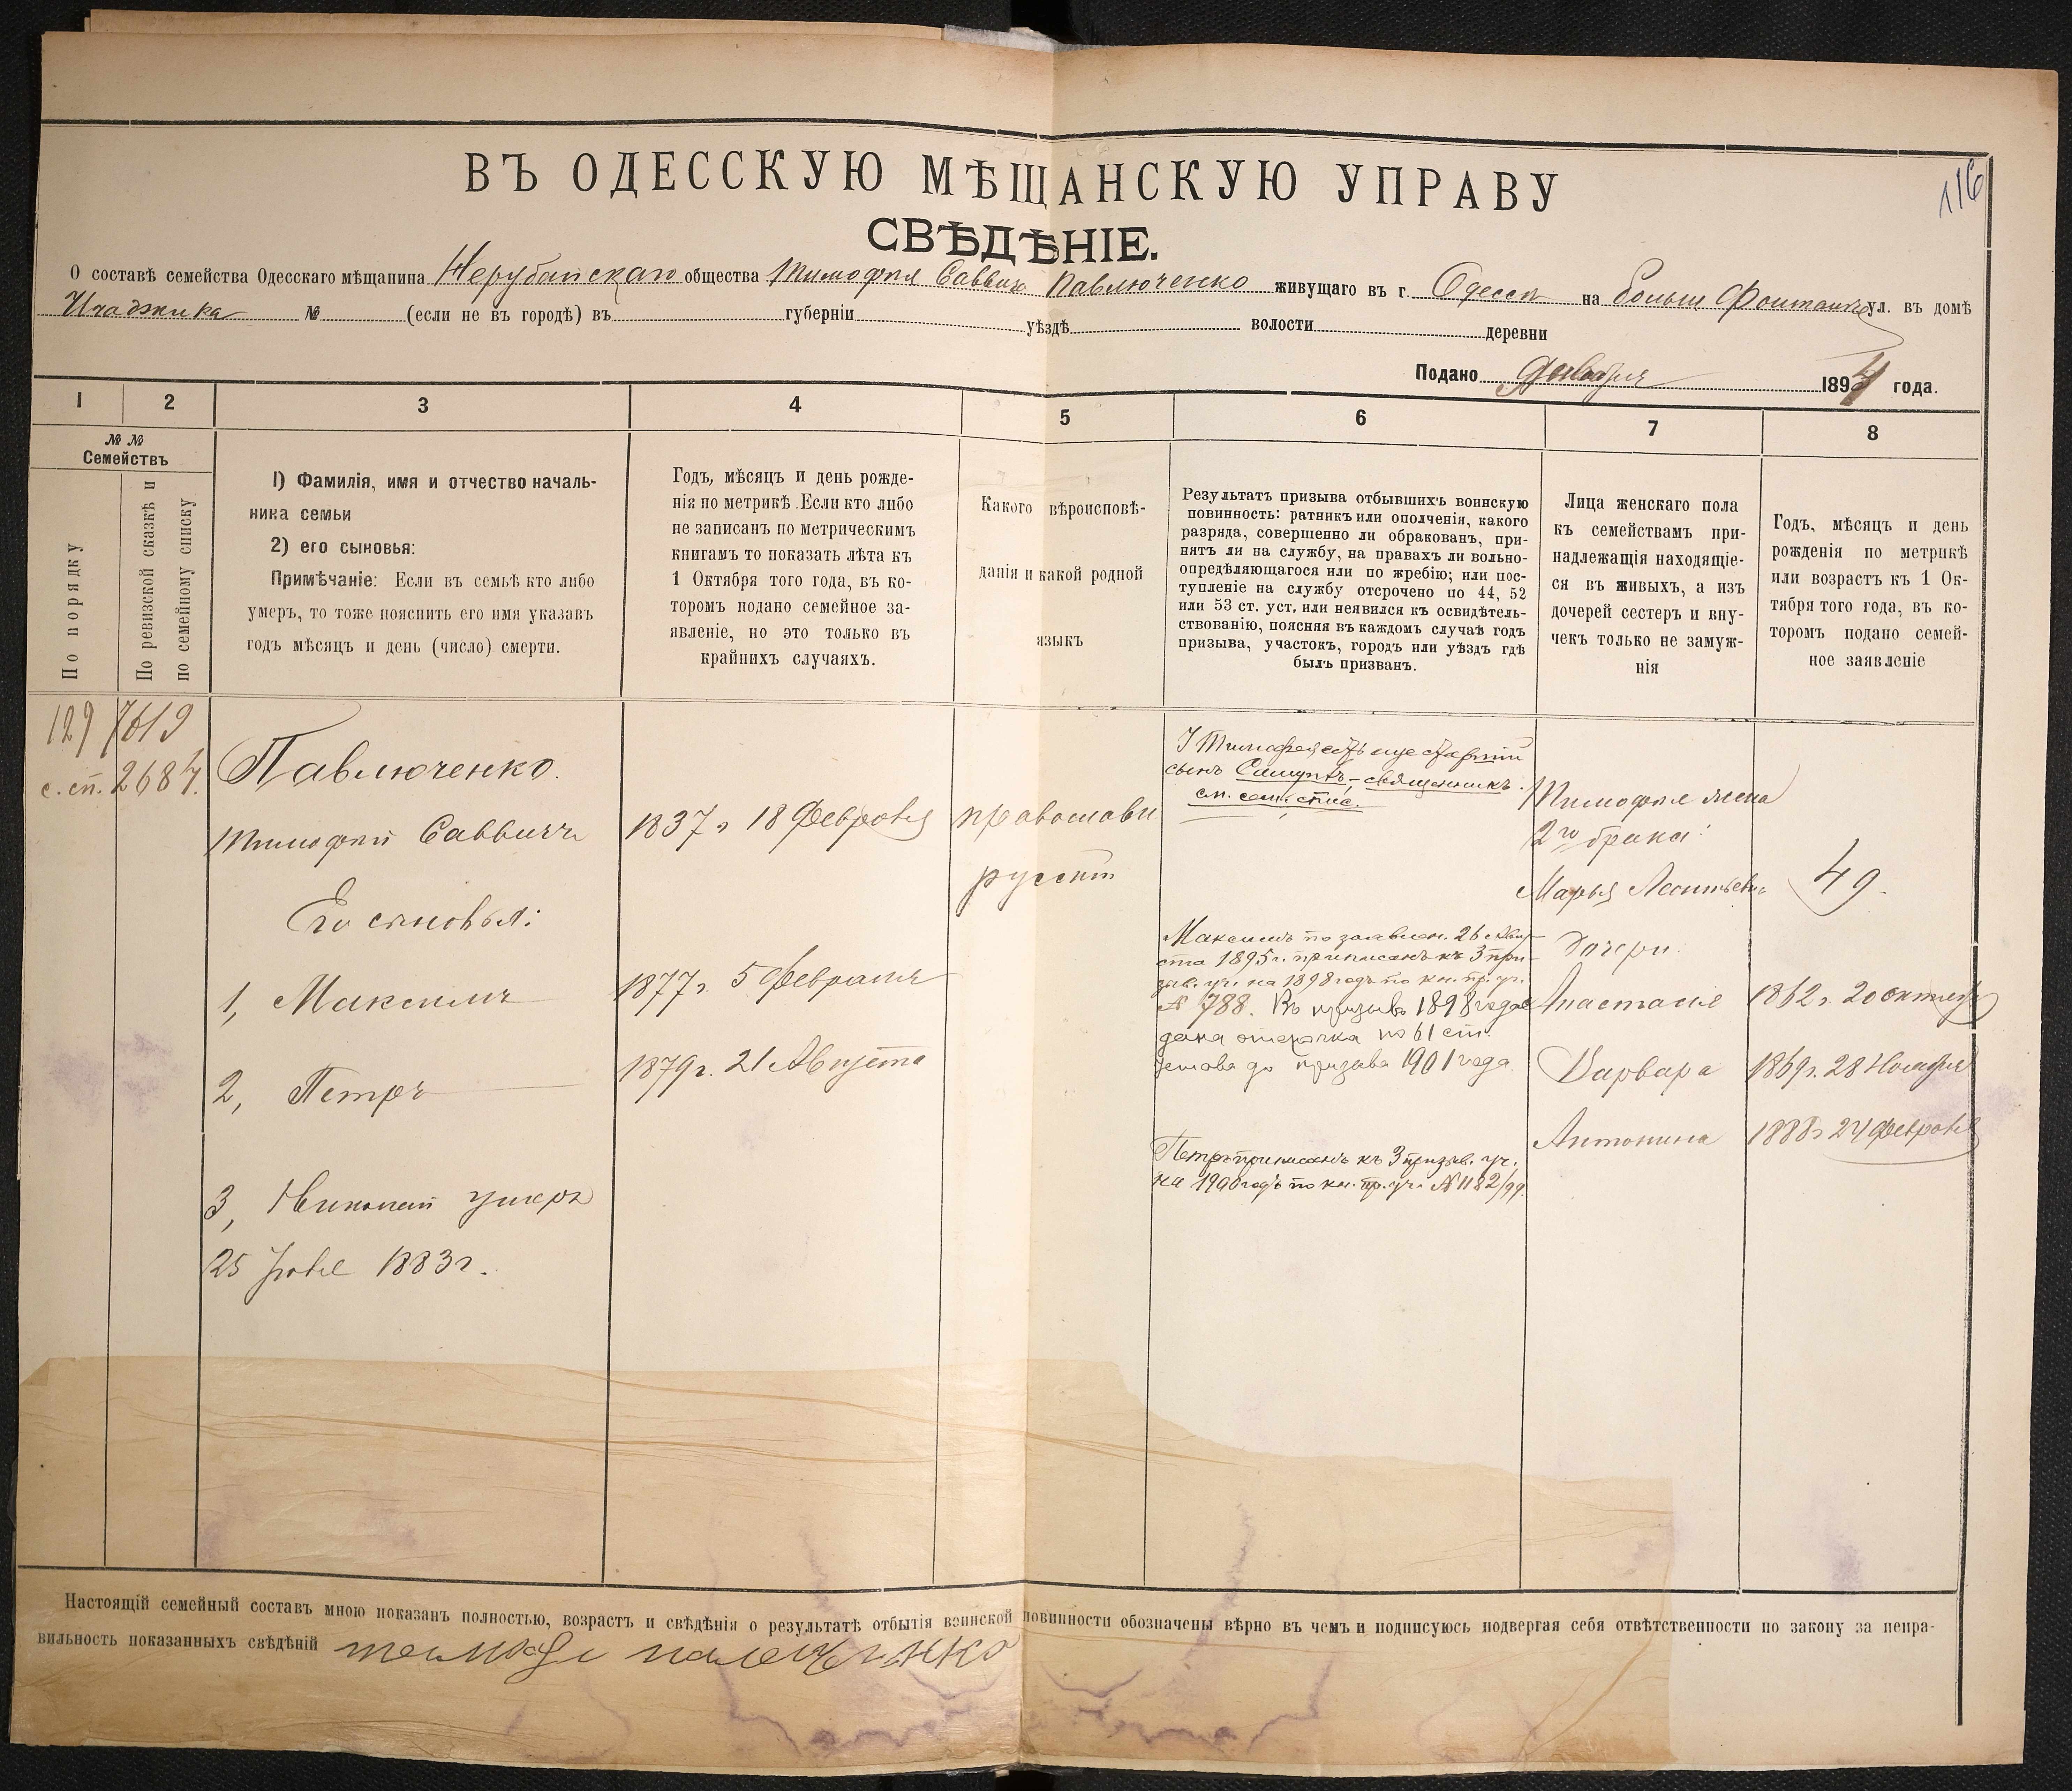 116
ВЪ ОДЕССКУЮ МѢЩАНСКУЮ УПРАВУ
СВѢДѢНІЕ.
О составѣ семейства Одесскаго мѣщанина Нерубайскаго общества Тимофея Саввича Павлюченко живущаго въ г. Одессѣ на Больш Фонтанѣ ул. въ домѣ
№ (если не въ городѣ) въ губерніи уѣздѣ волости деревни
Подано Января 1894 года.
1 2 3 4 5 6 7 8
№ №
Семействъ
По порядку
По ревизской сказкѣ и
по семейному списку
1) Фамилія, имя и отчество началь-
ника семьи
2) его сыновья:
Примѣчаніе: Если въ семьѣ кто либо
умеръ, то тоже пояснить его имя указавъ
годъ мѣсяцъ и день (число) смерти.
Годъ, мѣсяцъ и день рожде-
нія по метрикѣ. Если кто либо
не записанъ по метрическимъ
книгамъ то показать лѣта къ
1 Октября того года, въ ко-
торомъ подано семейное за-
явленіе, но это только въ
крайнихъ случаяхъ.
Какого вѣроисповѣ-
данія и какой родной
языкъ
Результатъ призыва отбывшихъ воинскую
повинность: ратникъ или ополченія, какого
разряда, совершенно ли обракованъ, при-
нятъ ли на службу, на правахъ ли вольно-
опредѣляющагося или по жребію; или пос-
тупленіе на службу отсрочено по 44, 52
или 53 ст. уст. или неявился къ освидѣтель-
ствованію, поясняя въ каждомъ случаѣ годъ
призыва, участокъ, городъ или уѣздъ гдѣ
былъ призванъ.
Лица женскаго пола
къ семействамъ при-
надлежащія находящіе-
ся въ живыхъ, а изъ
дочерей сестеръ и вну-
чекъ только не замуж-
нія
Годъ, мѣсяцъ и день
рожденія по метрикѣ
или возрастъ къ 1 Ок-
тября того года, въ ко-
торомъ подано семей-
ное заявленіе
129 7619
с. сп. 2684.
Павлюченко.
Тимофей Саввичъ
Его сыновья:
1, Максимъ
2, Петръ
3, Николай умеръ
25 1883 г.
1837 г 18 Февраля
1877 г. 5 Февраля
1879 г. 21 Августа
православн
русскій
У Тимофея есть еще старшій
сынъ – священникъ.
см. сем. спис.
Максимъ по заявлен. 26 Авгу-
ста 1895 г. приписанъ къ 3 при-
зыв. уч. на 1898 годъ по кн. пр. уч.
№ 788. Въ призывъ 1898 года
дана отсрочка по 61 ст.
устава до призыва 1901 года
Петръ приписанъ къ 3 призыв. уч.
на 1900 годъ по кн. пр. уч. № 1182/99.
Тимофея жена
2го брака:
Марья Леонтьевна
дочери
Анастасія
Варвара
Антонина
49.
1862 г. 20 октября
1869 г. 28 Ноября
1888 г 24 Февраля
Настоящій семейный составъ мною показанъ полностью, возрастъ и свѣдѣнія о результатѣ отбытія воинской повинности обозначены вѣрно въ чемъ и подписуюсь подвергая себя отвѣтственности по закону за непра-
вильность показанныхъ свѣдѣній